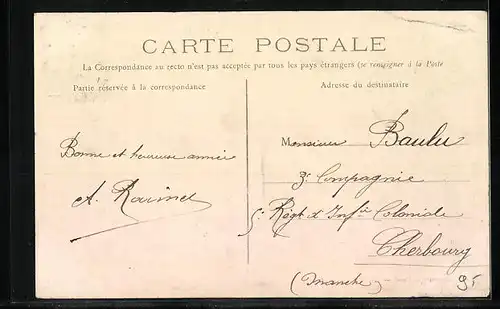 CARTE POSTALE
La Correspondance au recto n'est pas acceptée par tous les pays étrangers (se renseigner à la Poste
Partie réservée à la correspondance
Adresse du destinataire
Bonne et heureuse année
A. Ravinel
Monsieur Baulu
3e Compagnie
5e Régt d'Infie Coloniale
Cherbourg
(Manche)
95